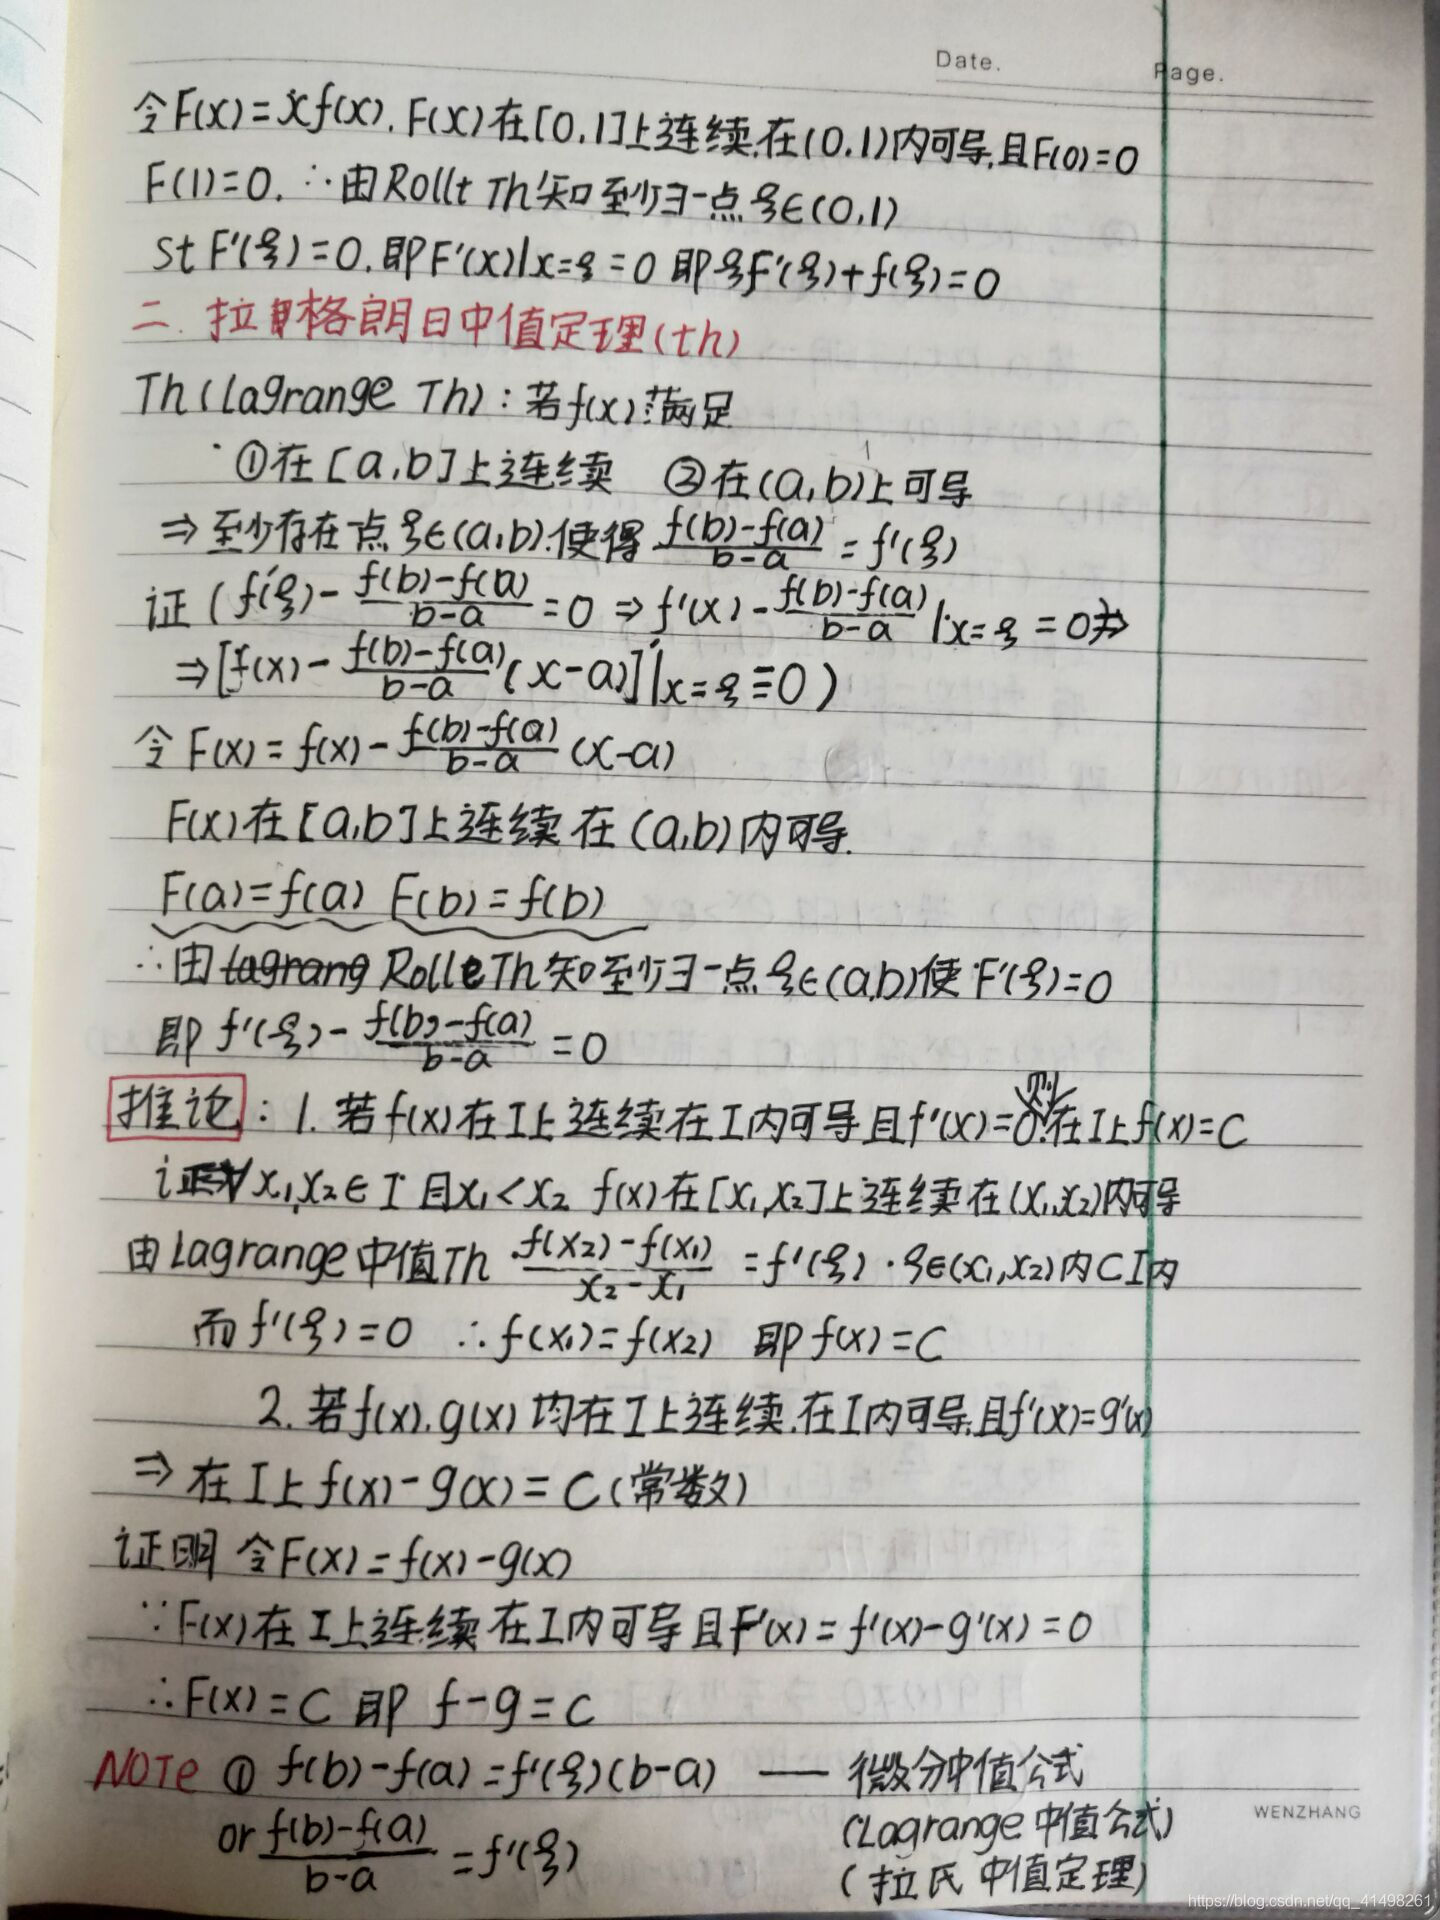 Date.
Page.
令F(x)=xf(x).F(x)在[0,1]上连续.在(0,1)内可导.且F(0)=0
F(1)=0. ∴由Rollt Th知至少∃一点ξ∈(0,1)
st F'(ξ)=0.即F'(x)|x=ξ=0 即ξF'(ξ)+f(ξ)=0
二. 拉格朗日中值定理(th)
Th(Lagrange Th):若f(x)满足
①在[a,b]上连续 ②在(a,b)上可导
⇒至少存在一点ξ∈(a,b).使得 f(b)-f(a)/b-a = f'(ξ)
证(f'(ξ)- f(b)-f(a)/b-a =0 ⇒ f'(x)- f(b)-f(a)/b-a |x=ξ =0⇒
⇒[f(x)- f(b)-f(a)/b-a (x-a)]'|x=ξ=0)
令F(x)=f(x)- f(b)-f(a)/b-a (x-a)
F(x)在[a,b]上连续 在(a,b)内可导.
F(a)=f(a) F(b)=f(b)
∴由lagrang RolleTh知至少∃一点ξ∈(a,b)使F'(ξ)=0
即 f'(ξ)- f(b)-f(a)/b-a =0
推论:1.若f(x)在I上连续在I内可导且f'(x)=0.则在I上f(x)=C
证∀x₁,x₂∈I 且x₁<x₂ f(x)在[x₁,x₂]上连续在(x₁,x₂)内可导
由Lagrange中值Th f(x₂)-f(x₁)/x₂-x₁ =f'(ξ).ξ∈(x₁,x₂)内⊂I内
而f'(ξ)=0 ∴f(x₁)=f(x₂) 即f(x)=C
2.若f(x).g(x)均在I上连续.在I内可导.且f'(x)=g'(x)
⇒在I上f(x)-g(x)=C(常数)
证明 令F(x)=f(x)-g(x)
∵F(x)在I上连续在I内可导且F'(x)=f'(x)-g'(x)=0
∴F(x)=C 即 f-g=C
NOTe ① f(b)-f(a)=f'(ξ)(b-a) —— 微分中值公式
(Lagrange中值公式)
or f(b)-f(a)/b-a =f'(ξ)
(拉氏中值定理)
WENZHANG
https://blog.csdn.net/qq_41498261